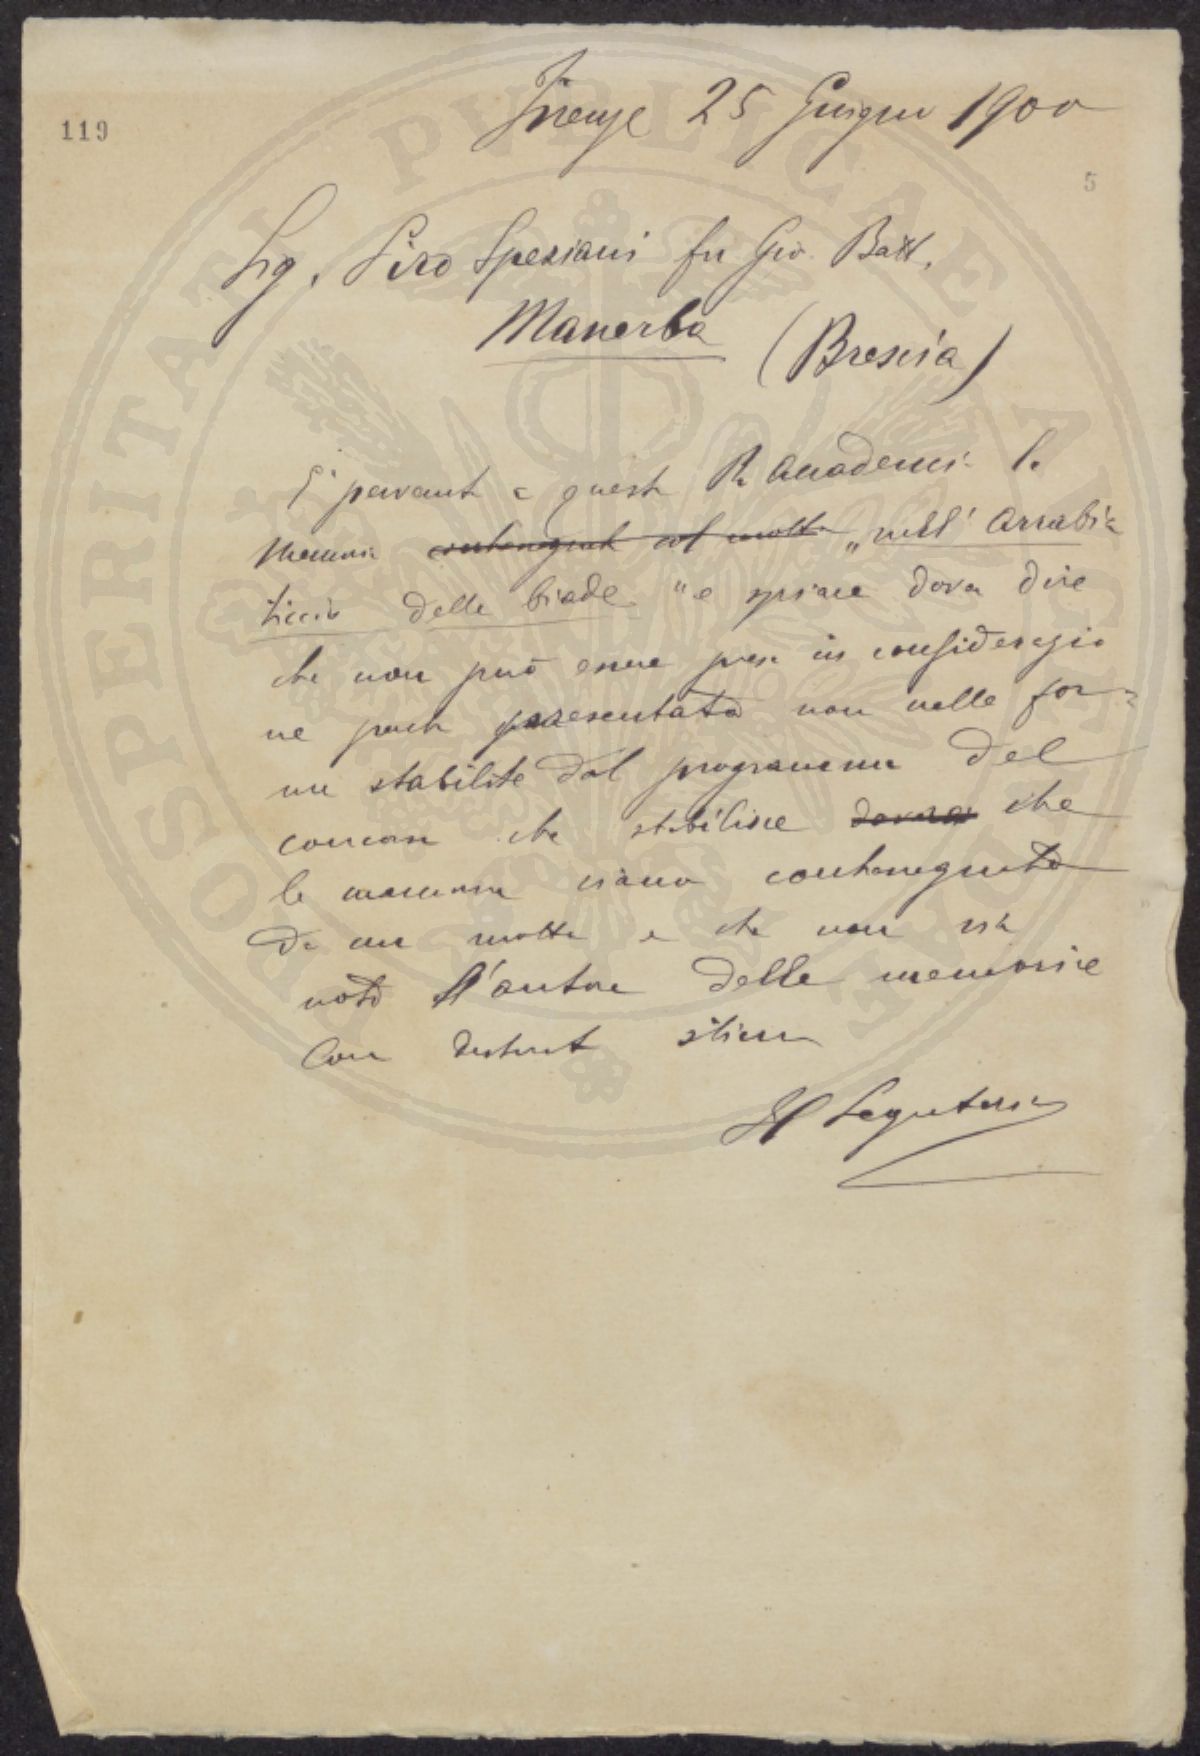 119
Firenze 25 Giugno 1900
5
Sig. Piro Speziani fu Gio. Batt.
Manerba
(Brescia)
E' pervenuta a questa R. Accademia la
memoria contenegnata col motto „nell' Arrabia
ticcio delle biade" e spiace dover dire
che non può essere presa in considerazio
ne perché presentata non nelle for=
me stabilite dal programma del
concorso che stabilisce dovere che
le memorie siano contrasegnate
da un motto e che non sia
noto l'autore delle memorie
Con distinta stima
Il Segretario
PROSPERITATI PVBLICAE AVGENDAE